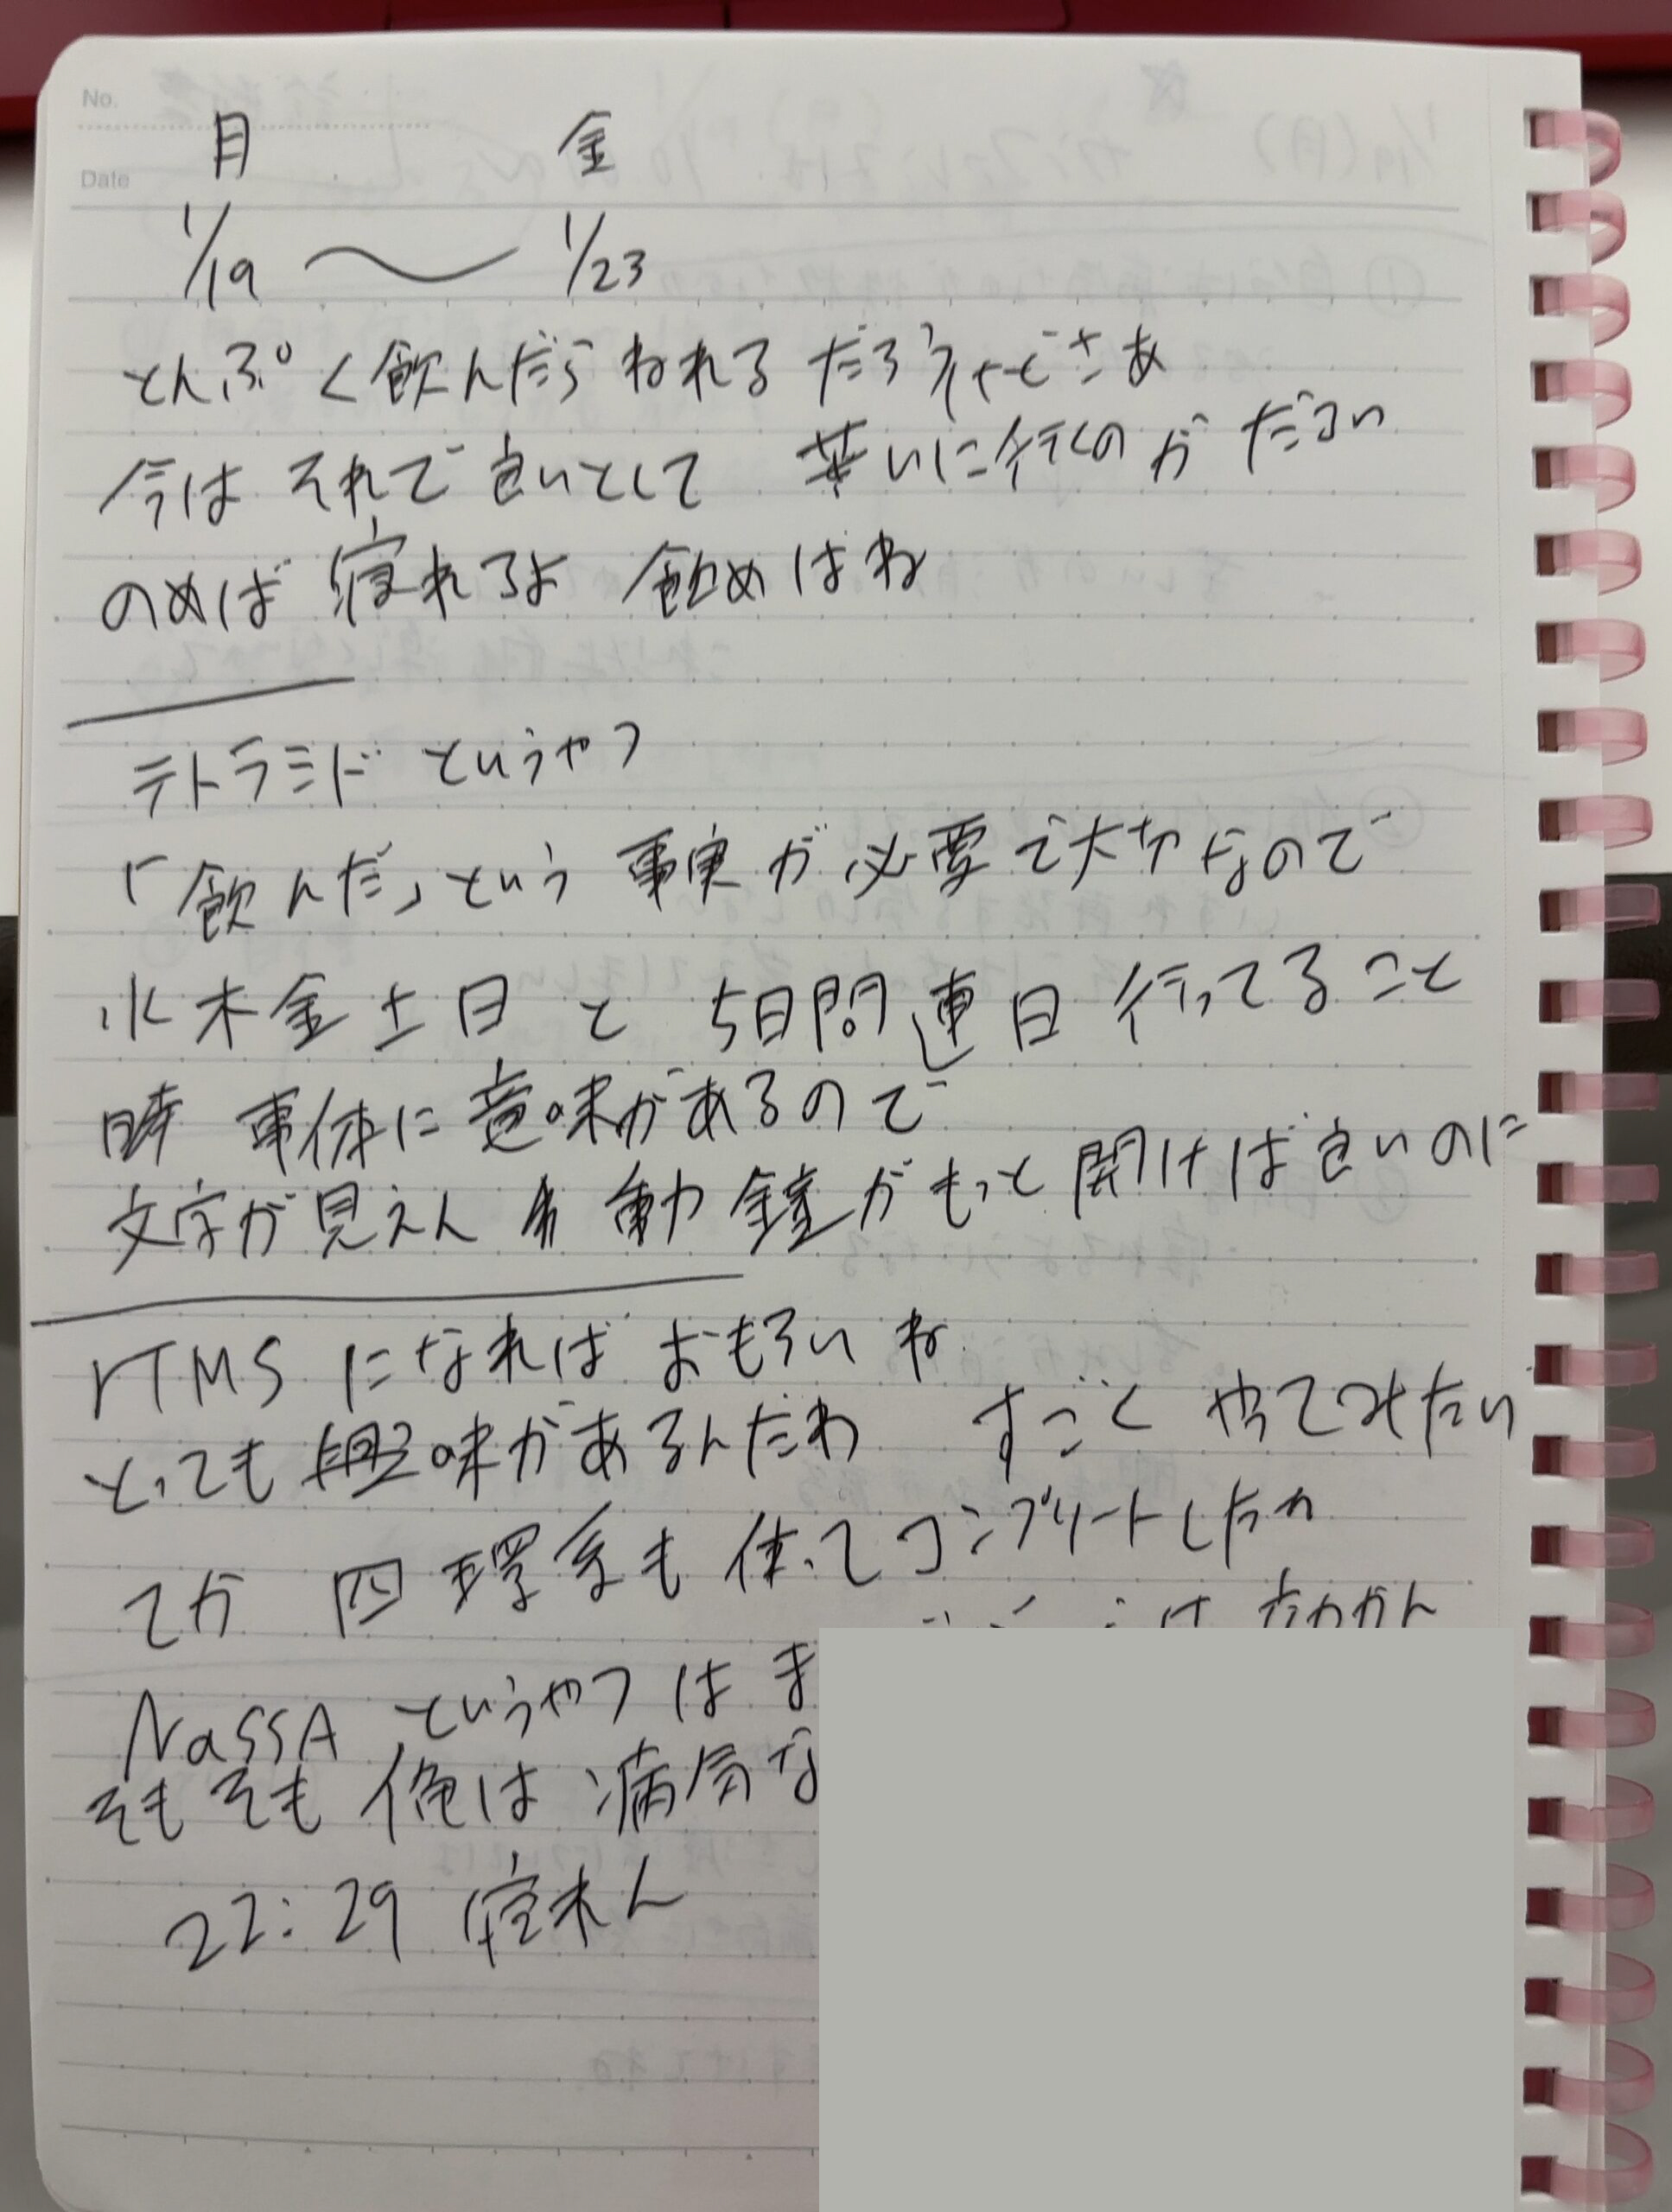 No.
Date
月 金
1/19 〜 1/23
とんぷく飲んだら ねれる だろうけどさあ
今は それで良いとして 貰いに行くのが だるい
のめば 寝れるよ 飲めばね
テトラミド というやつ
「飲んだ」という 事実が必要で大切なので
水木金土日 と 5日間 連日 行ってること
時 事体に意味があるので
文字が見えん 自動 鐘がもっと 開けば良いのに
rTMS になれば おもろいね
とっても 興味があるんだわ すっごく やってみたい
てか 四環系も 使ってコンプリートしたわ
NaSSA というやつ は ま
そもそも 俺は 病気な
22:29 寝れん